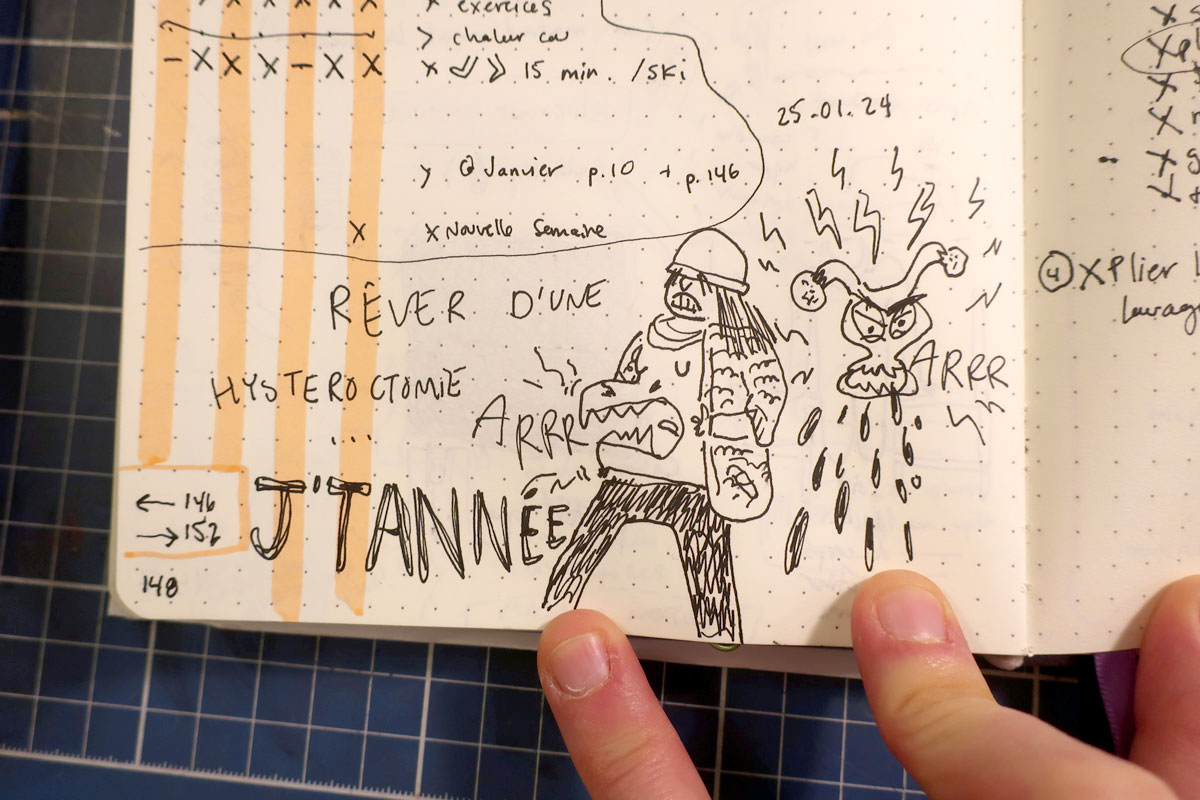 x exercices
> chaleur cou
– X X X – X X x << >> 15 min. /ski
25.01.24
> @Janvier p.10 + p.146
x x Nouvelle Semaine
RÊVER D'UNE
HYSTEROCTOMIE
....
ARRR
ARRR
J'TANNÉE
← 146
→ 152
148
④ X Plier